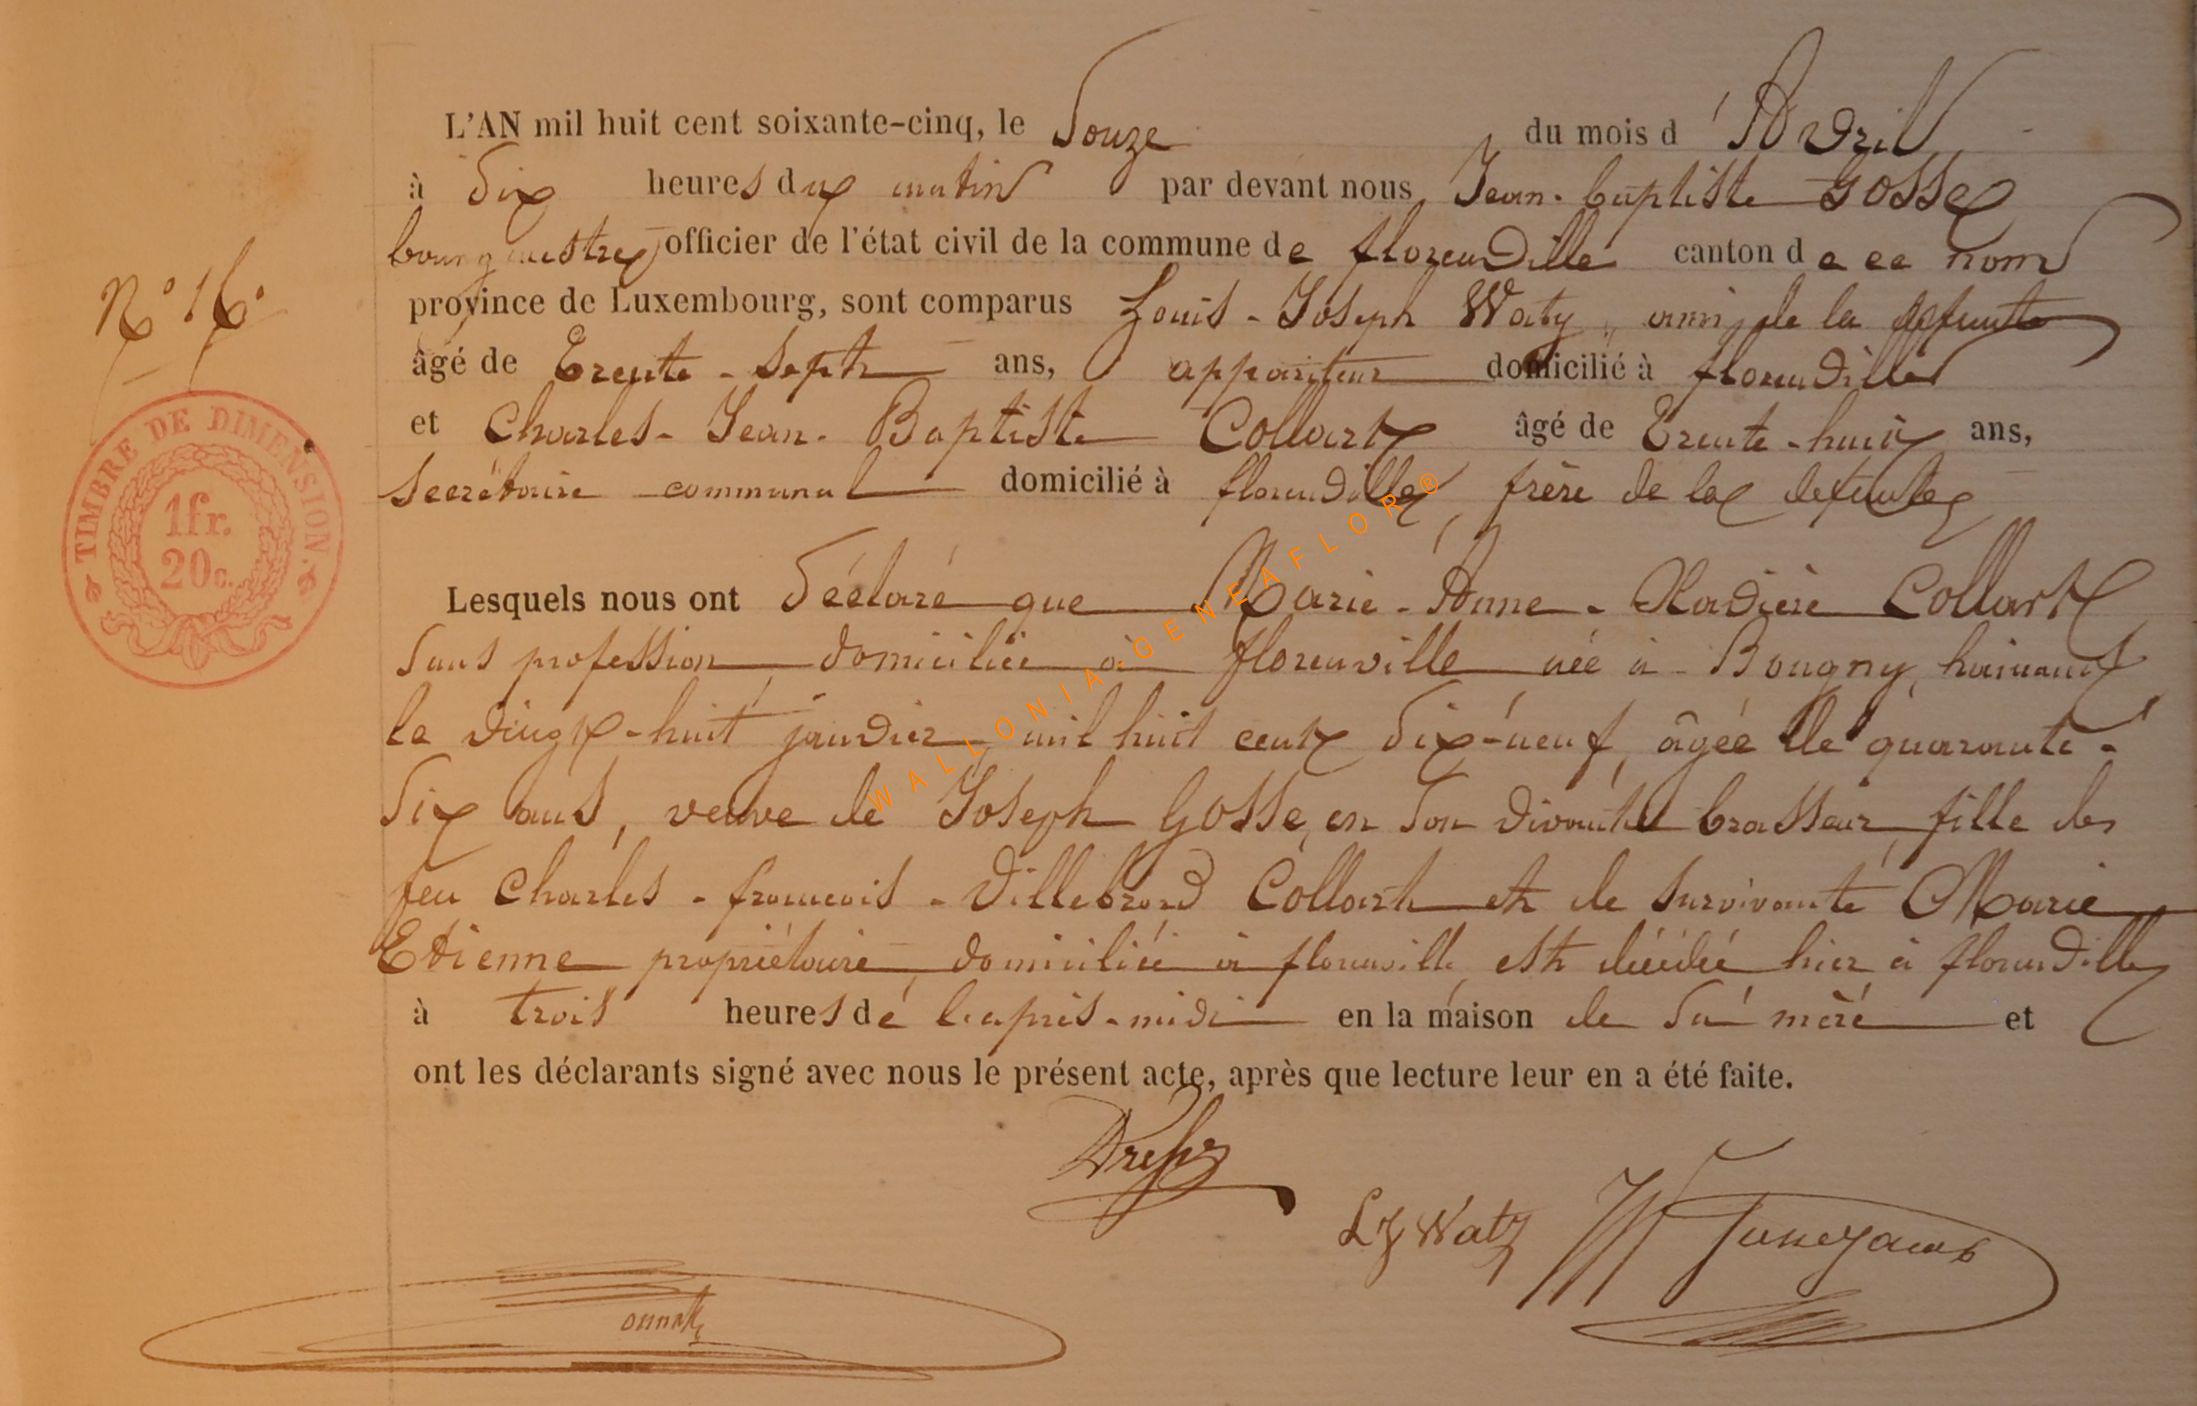 L'AN mil huit cent soixante-cinq, le Douze du mois d'Avril
à dix heures du matin par devant nous Jean-baptiste Gosse
bourgmestre, officier de l'état civil de la commune de florenville canton de ce nom
province de Luxembourg, sont comparus Louis-Joseph Waty, ami de la défunte
N° 16.
âgé de trente-sept ans, appariteur domicilié à florenville
et Charles-Jean-Baptiste Collart âgé de trente-huit ans,
secrétaire communal domicilié à florenville, frère de la défunte
TIMBRE DE DIMENSION.
1fr.
20c.
Lesquels nous ont déclaré que Marie-Anne- Collart
sans profession, domiciliée à florenville née à Bougny, hainaut
le vingt-huit janvier mil huit cent dix-neuf, âgée de quarante-
six ans, veuve de Joseph Gosse, en son vivant brasseur, fille de
feu Charles-francois-Villebrord Collart et de survivante Marie
Etienne propriétaire, domiciliée à florenville, est décédée hier à florenville
à trois heures de l'après-midi en la maison de sa mère et
ont les déclarants signé avec nous le présent acte, après que lecture leur en a été faite.
LJ Waty
WALLONIA GENEAFLOR®